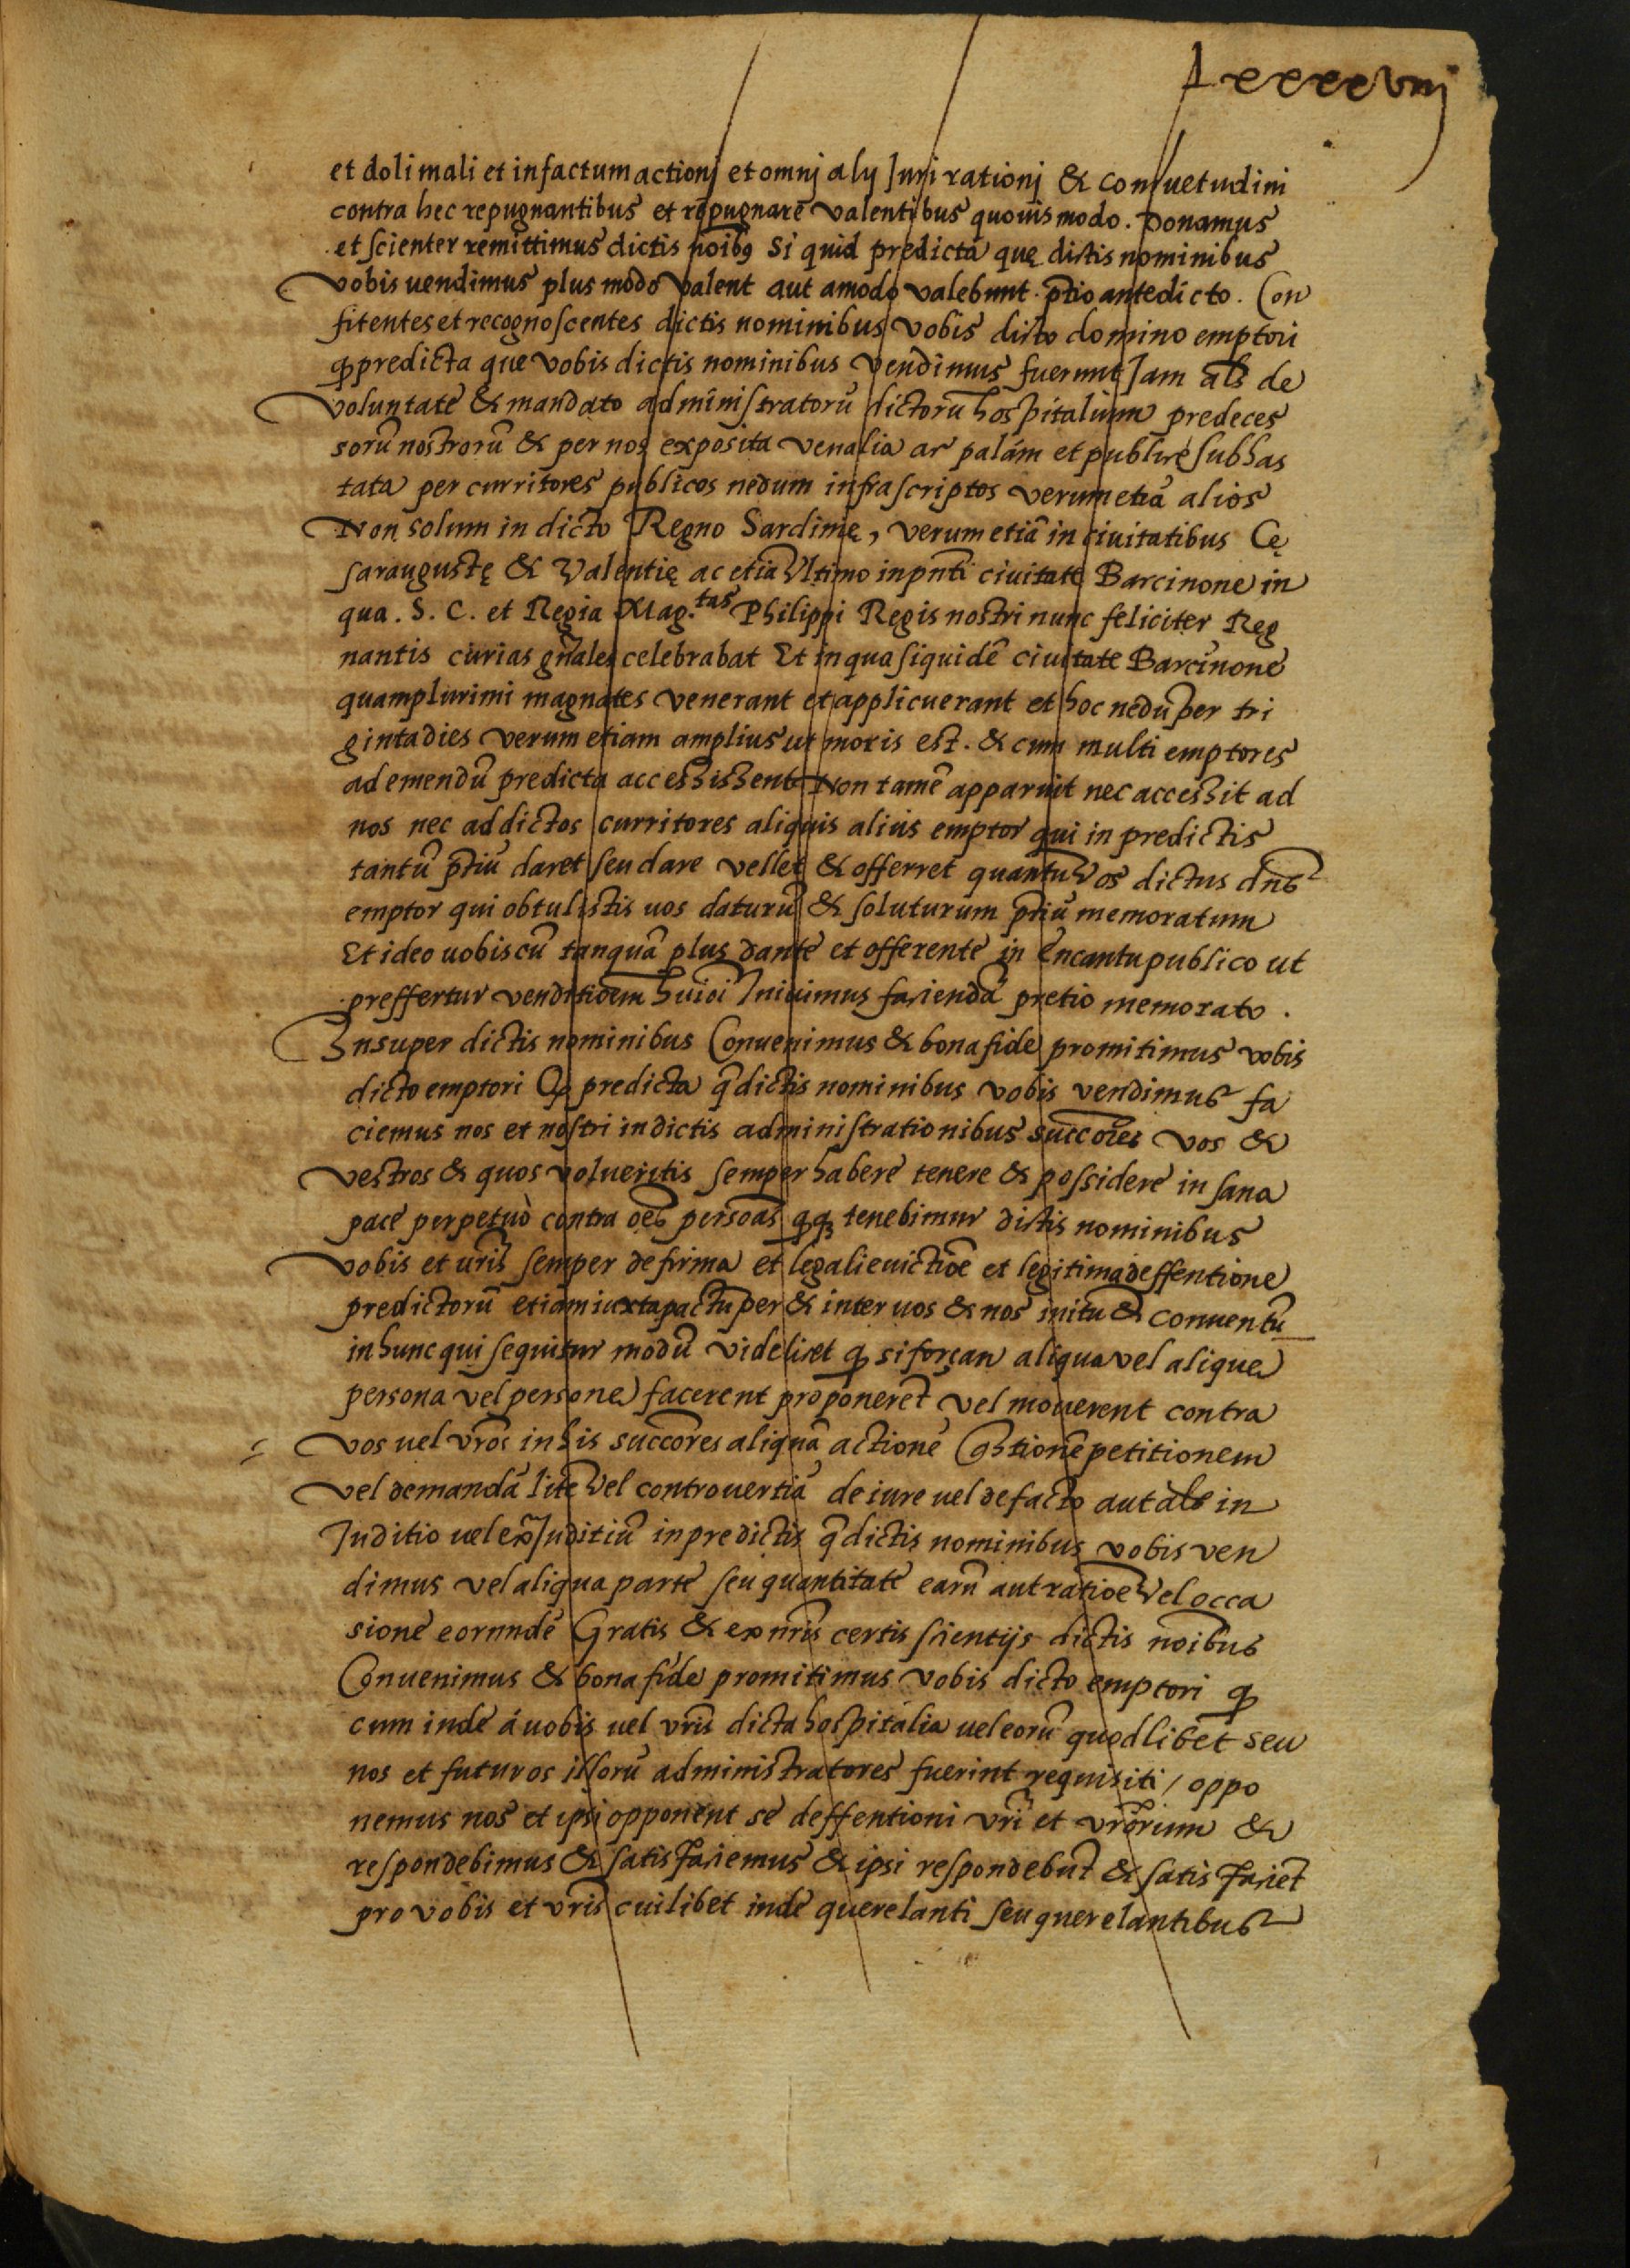 Lxxxxviij
et doli mali et in factum actionj et omnj alij Juri rationj & consuetudini
contra hec repugnantibus et repugnare valentibus quouis modo. Donamus
et scienter remittimus dictis noibꝯ Si quid predicta quę dictis nominibus
vobis uendimus plus modo valent aut amodo valebunt p̄tio antedicto. Con
fitentes et recognoscentes dictis nominibus vobis dicto domino emptori
ꝙ predicta que vobis dictis nominibus vendimus fuerunt Jam als de
voluntate & mandato administratorū dictorū hospitalium predeces
sorū nostrorū & per nos exposita venalia ac palám et publicè subhas
tata per curritores publicos nedum infrascriptos verum etiā alios
Non solum in dicto Regno Sardinię, verum etiā in ciuitatibus Cę
saraugustę & Valentię ac etiā Vltimo in pn̄ti ciuitate Barcinone in
qua. S. C. et Regia Mag.tas Philippi Regis nostri nunc feliciter Reg
nantis curias gn̄ales celebrabat Et in qua siquidē ciuitate Barcinone
quamplurimi magnates venerant et applicuerant et hoc nedū per tri
ginta dies verum etiam amplius ut moris est. & cum multi emptores
ad emendū predicta accessissent Non tamē apparuit nec accessit ad
nos nec ad dictos curritores aliquis alius emptor qui in predictis
tantū p̄tiū daret seu dare vellet & offerret quantū Vos dictus dn̄s
emptor qui obtulistis uos daturū & soluturum p̄tiū memoratum
Et ideo uobiscū tanquā plus dante et offerente in Encantu publico ut
preffertur venditiōem huiōi Iniuimus faciendā pretio memorato.
Insuper dictis nominibus Conuenimus & bona fide promitimus vobis
dicto emptori Ꝙ predicta q̄ dictis nominibus vobis vendimus fa
ciemus nos et nostri in dictis administrationibus succōres vos &
vestros & quos volueritis semper habere tenere & possidere in sana
pace perpetuò contra oēs persōas ꝙꝗ tenebimur dictis nominibus
vobis et ur̄is semper de firma et legali euictiōe et legitima deffentione
predictorū etiam iuxta pactū per & inter uos & nos initū & conuentū
in hunc qui sequitur modū videlicet ꝙ si forçan aliqua vel alique
persona vel persone facerent proponerēt vel mouerent contra
vos uel vr̄os in his succōres aliquā actionē Q̄stionē petitionem
vel demandā litē Vel controuertiā de iure uel de facto aut als in
Juditio uel ex̄ Juditiū in predictis q̄ dictis nominibus vobis ven
dimus vel aliqua parte seu quantitate earū aut ratiōe Vel occa
sione eorundē Gratis & ex nr̄is certis scientijs dictis noībus
Conuenimus & bona fide promitimus vobis dicto emptori ꝙ
cum inde á uobis uel vr̄is dicta hospitalia uel eorū quodlibet seu
nos et futuros illorū administratores fuerint requisiti / oppo
nemus nos et ipsi opponent se deffentioni vr̄i et vr̄orum &
respondebimus & satisfaciemus & ipsi respondebūt & satisfaciēt
pro vobis et vr̄is cuilibet inde querelanti seu querelantibus